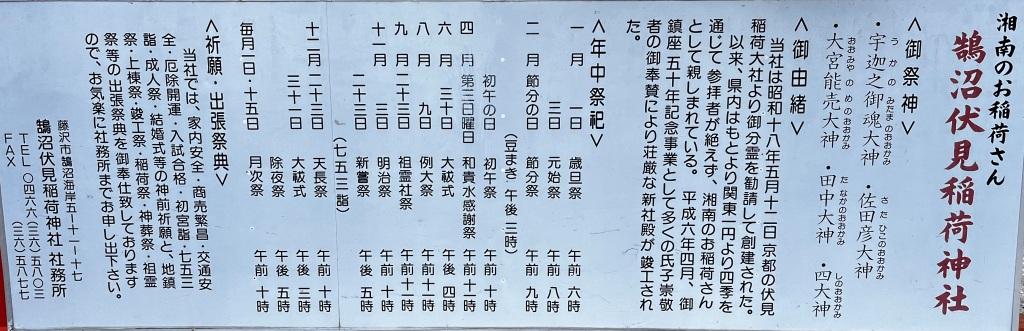 湘南のお稲荷さん
鵠沼伏見稲荷神社
<御祭神>
・宇迦之御魂大神 ・佐田彦大神
うかのみたまのおおかみ さたひこのおおかみ
・大宮能売大神 ・田中大神 ・四大神
おおみやのめのおおかみ たなかのおおかみ しのおおかみ
<御由緒>
当社は昭和十八年五月十二日京都の伏見
稲荷大社より御分霊を勧請して創建された。
以来、県内はもとより関東一円より四季を
通じて参拝者が絶えず、湘南のお稲荷さん
として親しまれている。平成六年四月、御
鎮座五十年記念事業として多くの氏子崇敬
者の御奉賛により荘厳な新社殿が竣工され
た。
<年中祭祀>
一月 一日 歳旦祭 午前六時
三日 元始祭 午前八時
二月 節分の日 節分祭 午前九時
(豆まき 午後三時)
初午の日 初午祭 午前十時
四月 第三日曜日 和貴水感謝祭 午前十時
六月 三十日 大祓式 午後四時
八月 九日 例大祭 午前十一時
九月 二十三日 祖霊社祭 午前十一時
十一月 三日 明治祭 午前十時
二十三日 新嘗祭 午後五時
(七五三詣)
十二月 二十三日 天長祭 午前十時
三十一日 大祓式 午後三時
除夜祭 午後五時
毎月一日・十五日 月次祭 午前十時
<祈願・出張祭典>
当社では、家内安全・商売繁昌・交通安
全・厄除開運・入試合格・初宮詣・七五三
詣・成人祭・結婚式等の神前祈願と、地鎮
祭・上棟祭・竣工祭・稲荷祭・神葬祭・祖霊
祭等の出張祭典を御奉仕致しております
ので、お気楽に社務所までお申し出下さい。
藤沢市鵠沼海岸五-十一-十七
鵠沼伏見稲荷神社 社務所
TEL 〇四六六(三六)五八〇三
FAX (三六)五八七七